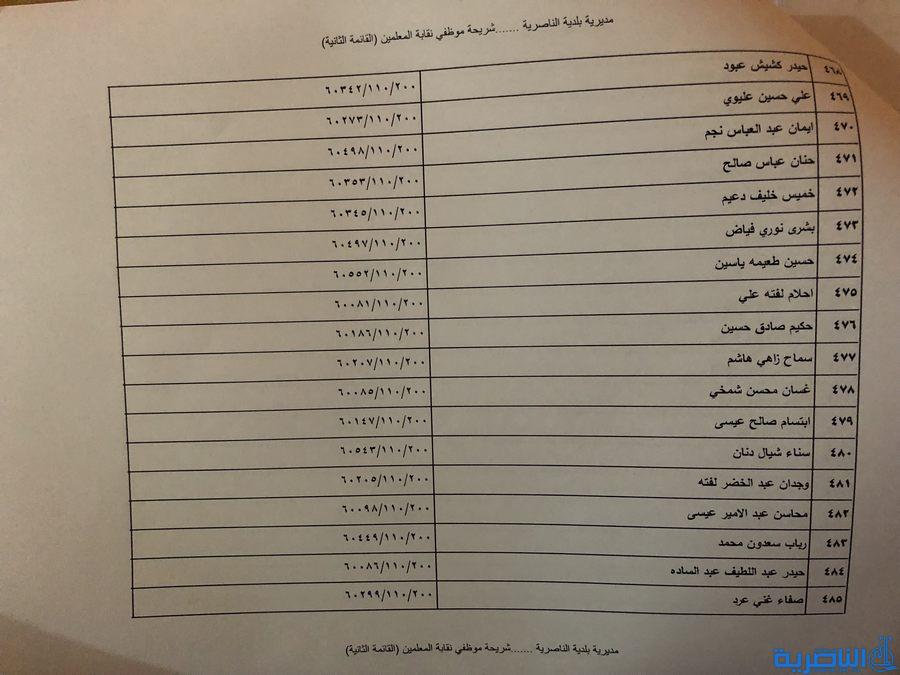 مديرية بلدية الناصرية .......شريحة موظفي نقابة المعلمين (القائمة الثانية)
٤٦٨ حيدر كشيش عبود ٦٠٣٤٢/١١٠/٢٠٠
٤٦٩ علي حسين عليوي ٦٠٢٧٣/١١٠/٢٠٠
٤٧٠ ايمان عبد العباس نجم ٦٠٤٩٨/١١٠/٢٠٠
٤٧١ حنان عباس صالح ٦٠٣٥٣/١١٠/٢٠٠
٤٧٢ خميس خليف دعيم ٦٠٣٤٥/١١٠/٢٠٠
٤٧٣ بشرى نوري فياض ٦٠٤٩٧/١١٠/٢٠٠
٤٧٤ حسين طعيمه ياسين ٦٠٥٥٢/١١٠/٢٠٠
٤٧٥ احلام لفته علي ٦٠٠٨١/١١٠/٢٠٠
٤٧٦ حكيم صادق حسين ٦٠١٨٦/١١٠/٢٠٠
٤٧٧ سماح زاهي هاشم ٦٠٢٠٧/١١٠/٢٠٠
٤٧٨ غسان محسن شمخي ٦٠٠٨٥/١١٠/٢٠٠
٤٧٩ ابتسام صالح عيسى ٦٠١٤٧/١١٠/٢٠٠
٤٨٠ سناء شيال دنان ٦٠٥٤٣/١١٠/٢٠٠
٤٨١ وجدان عبد الخضر لفته ٦٠٢٠٥/١١٠/٢٠٠
٤٨٢ محاسن عبد الامير عيسى ٦٠٠٩٨/١١٠/٢٠٠
٤٨٣ رباب سعدون محمد ٦٠٤٤٩/١١٠/٢٠٠
٤٨٤ حيدر عبد اللطيف عبد الساده ٦٠٠٨٦/١١٠/٢٠٠
٤٨٥ صفاء غني عرد ٦٠٢٩٩/١١٠/٢٠٠
مديرية بلدية الناصرية .......شريحة موظفي نقابة المعلمين (القائمة الثانية)
الناصرية